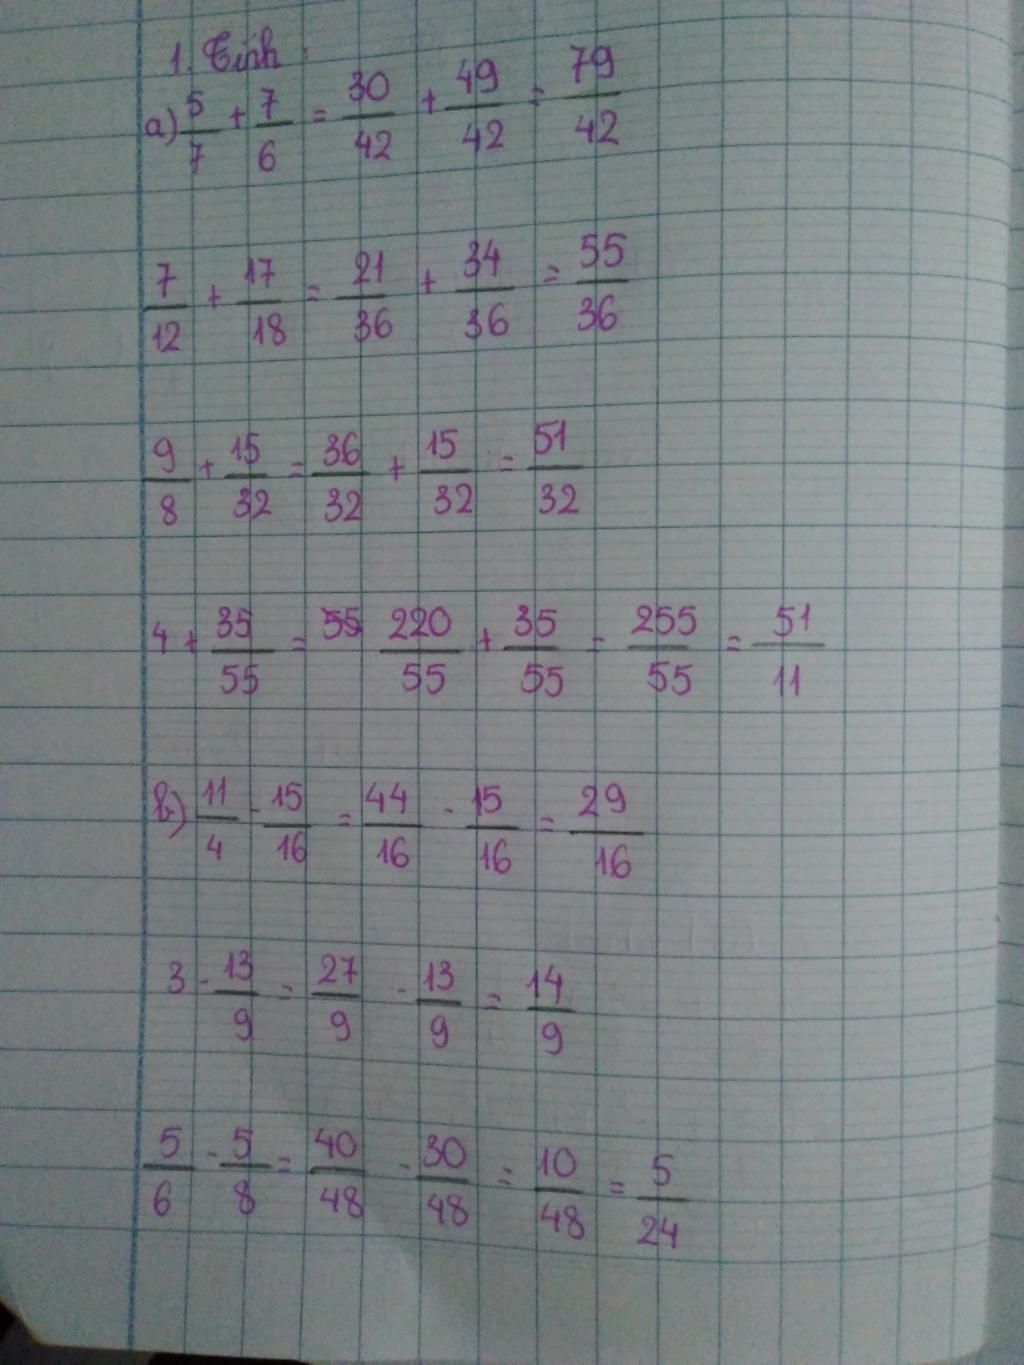 1. Tính :
a) 5/7 + 7/6 = 30/42 + 49/42 = 79/42
7/12 + 17/18 = 21/36 + 34/36 = 55/36
9/8 + 15/32 = 36/32 + 15/32 = 51/32
4 + 35/55 = 55 220/55 + 35/55 = 255/55 = 51/11
b) 11/4 - 15/16 = 44/16 - 15/16 = 29/16
3 - 13/9 = 27/9 - 13/9 = 14/9
5/6 - 5/8 = 40/48 - 30/48 = 10/48 = 5/24